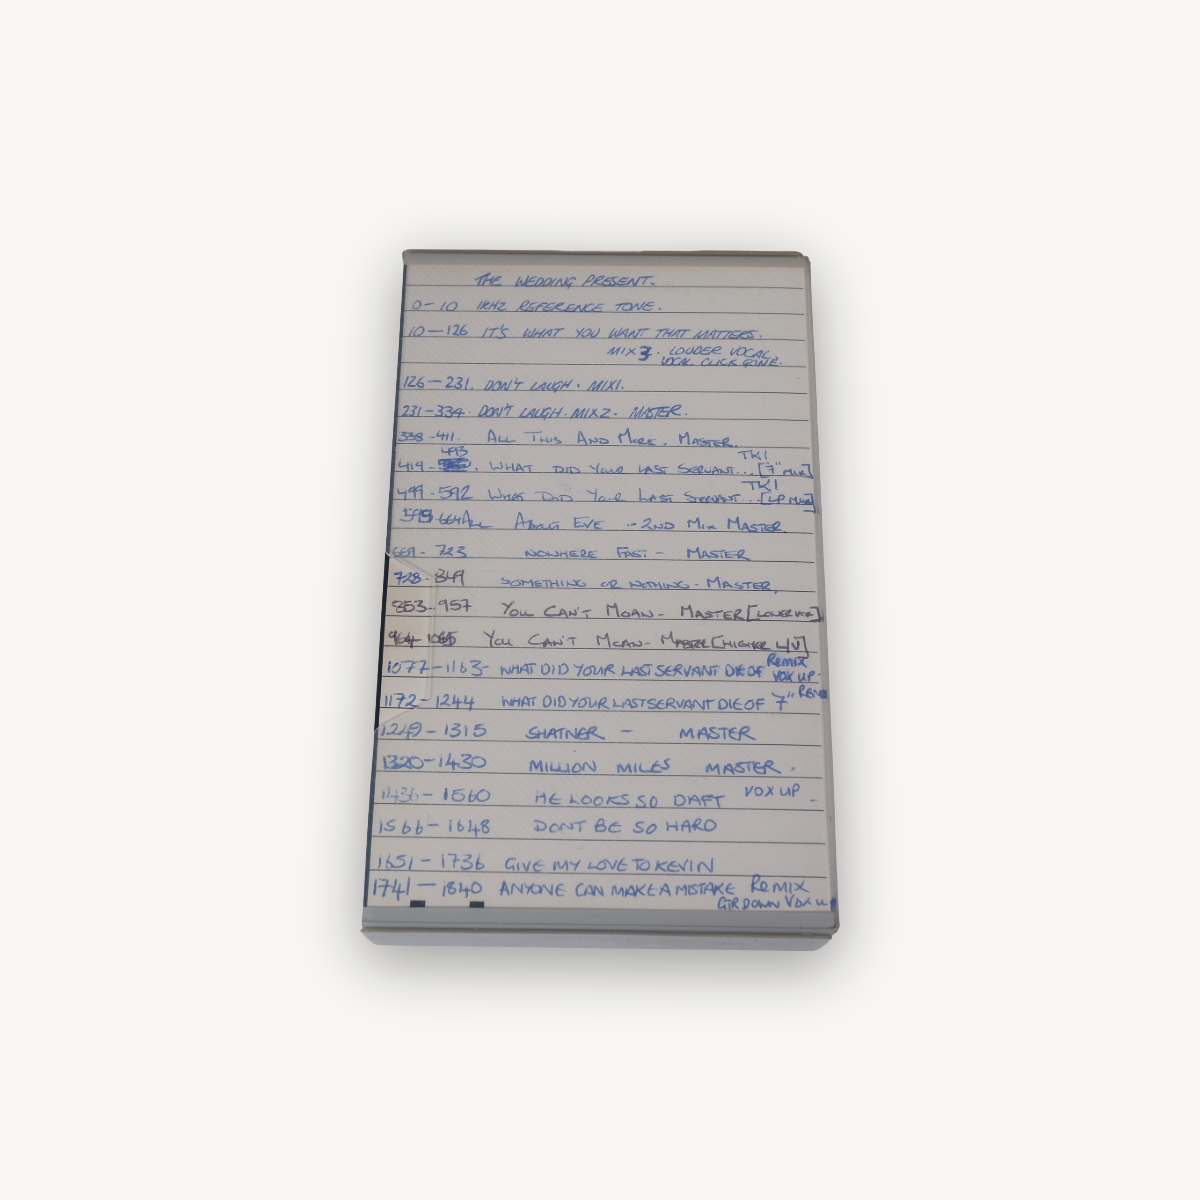 THE WEDDING PRESENT.
0-10 1KHZ REFERENCE TONE.
10-126 IT'S WHAT YOU WANT THAT MATTERS.
MIX 3. LOUDER VOCAL
VOCAL CLICK GONE.
126-231. DON'T LAUGH. MIX1.
231-334. DON'T LAUGH. MIX2. MASTER.
338-411. ALL THIS AND MORE. MASTER.
493 TK1
419- . WHAT DID YOUR LAST SERVANT... [7" MIX]
TK1
499-592 WHAT DID YOUR LAST SERVANT... [LP MIX]
598-664 ALL ABOUT EVE - 2ND MIX MASTER
669-723 NOWHERE FAST - MASTER
728-849 SOMETHING OR NOTHING - MASTER
853-957 YOU CAN'T MOAN - MASTER [LOWER VOX]
964-1065 YOU CAN'T MOAN - MASTER [HIGHER LV]
1077-1163- WHAT DID YOUR LAST SERVANT DIE OF Remix
VOX UP-
1172-1244 WHAT DID YOUR LAST SERVANT DIE OF 7" REMIX
1249-1315 SHATNER - MASTER
1320-1430 MILLION MILES MASTER.
1436-1560 HE LOOKS SO DAFT VOX UP -
1566-1648 DONT BE SO HARD
1651-1736 GIVE MY LOVE TO KEVIN
1741-1840 ANYONE CAN MAKE A MISTAKE Remix
GTR DOWN VOX UP